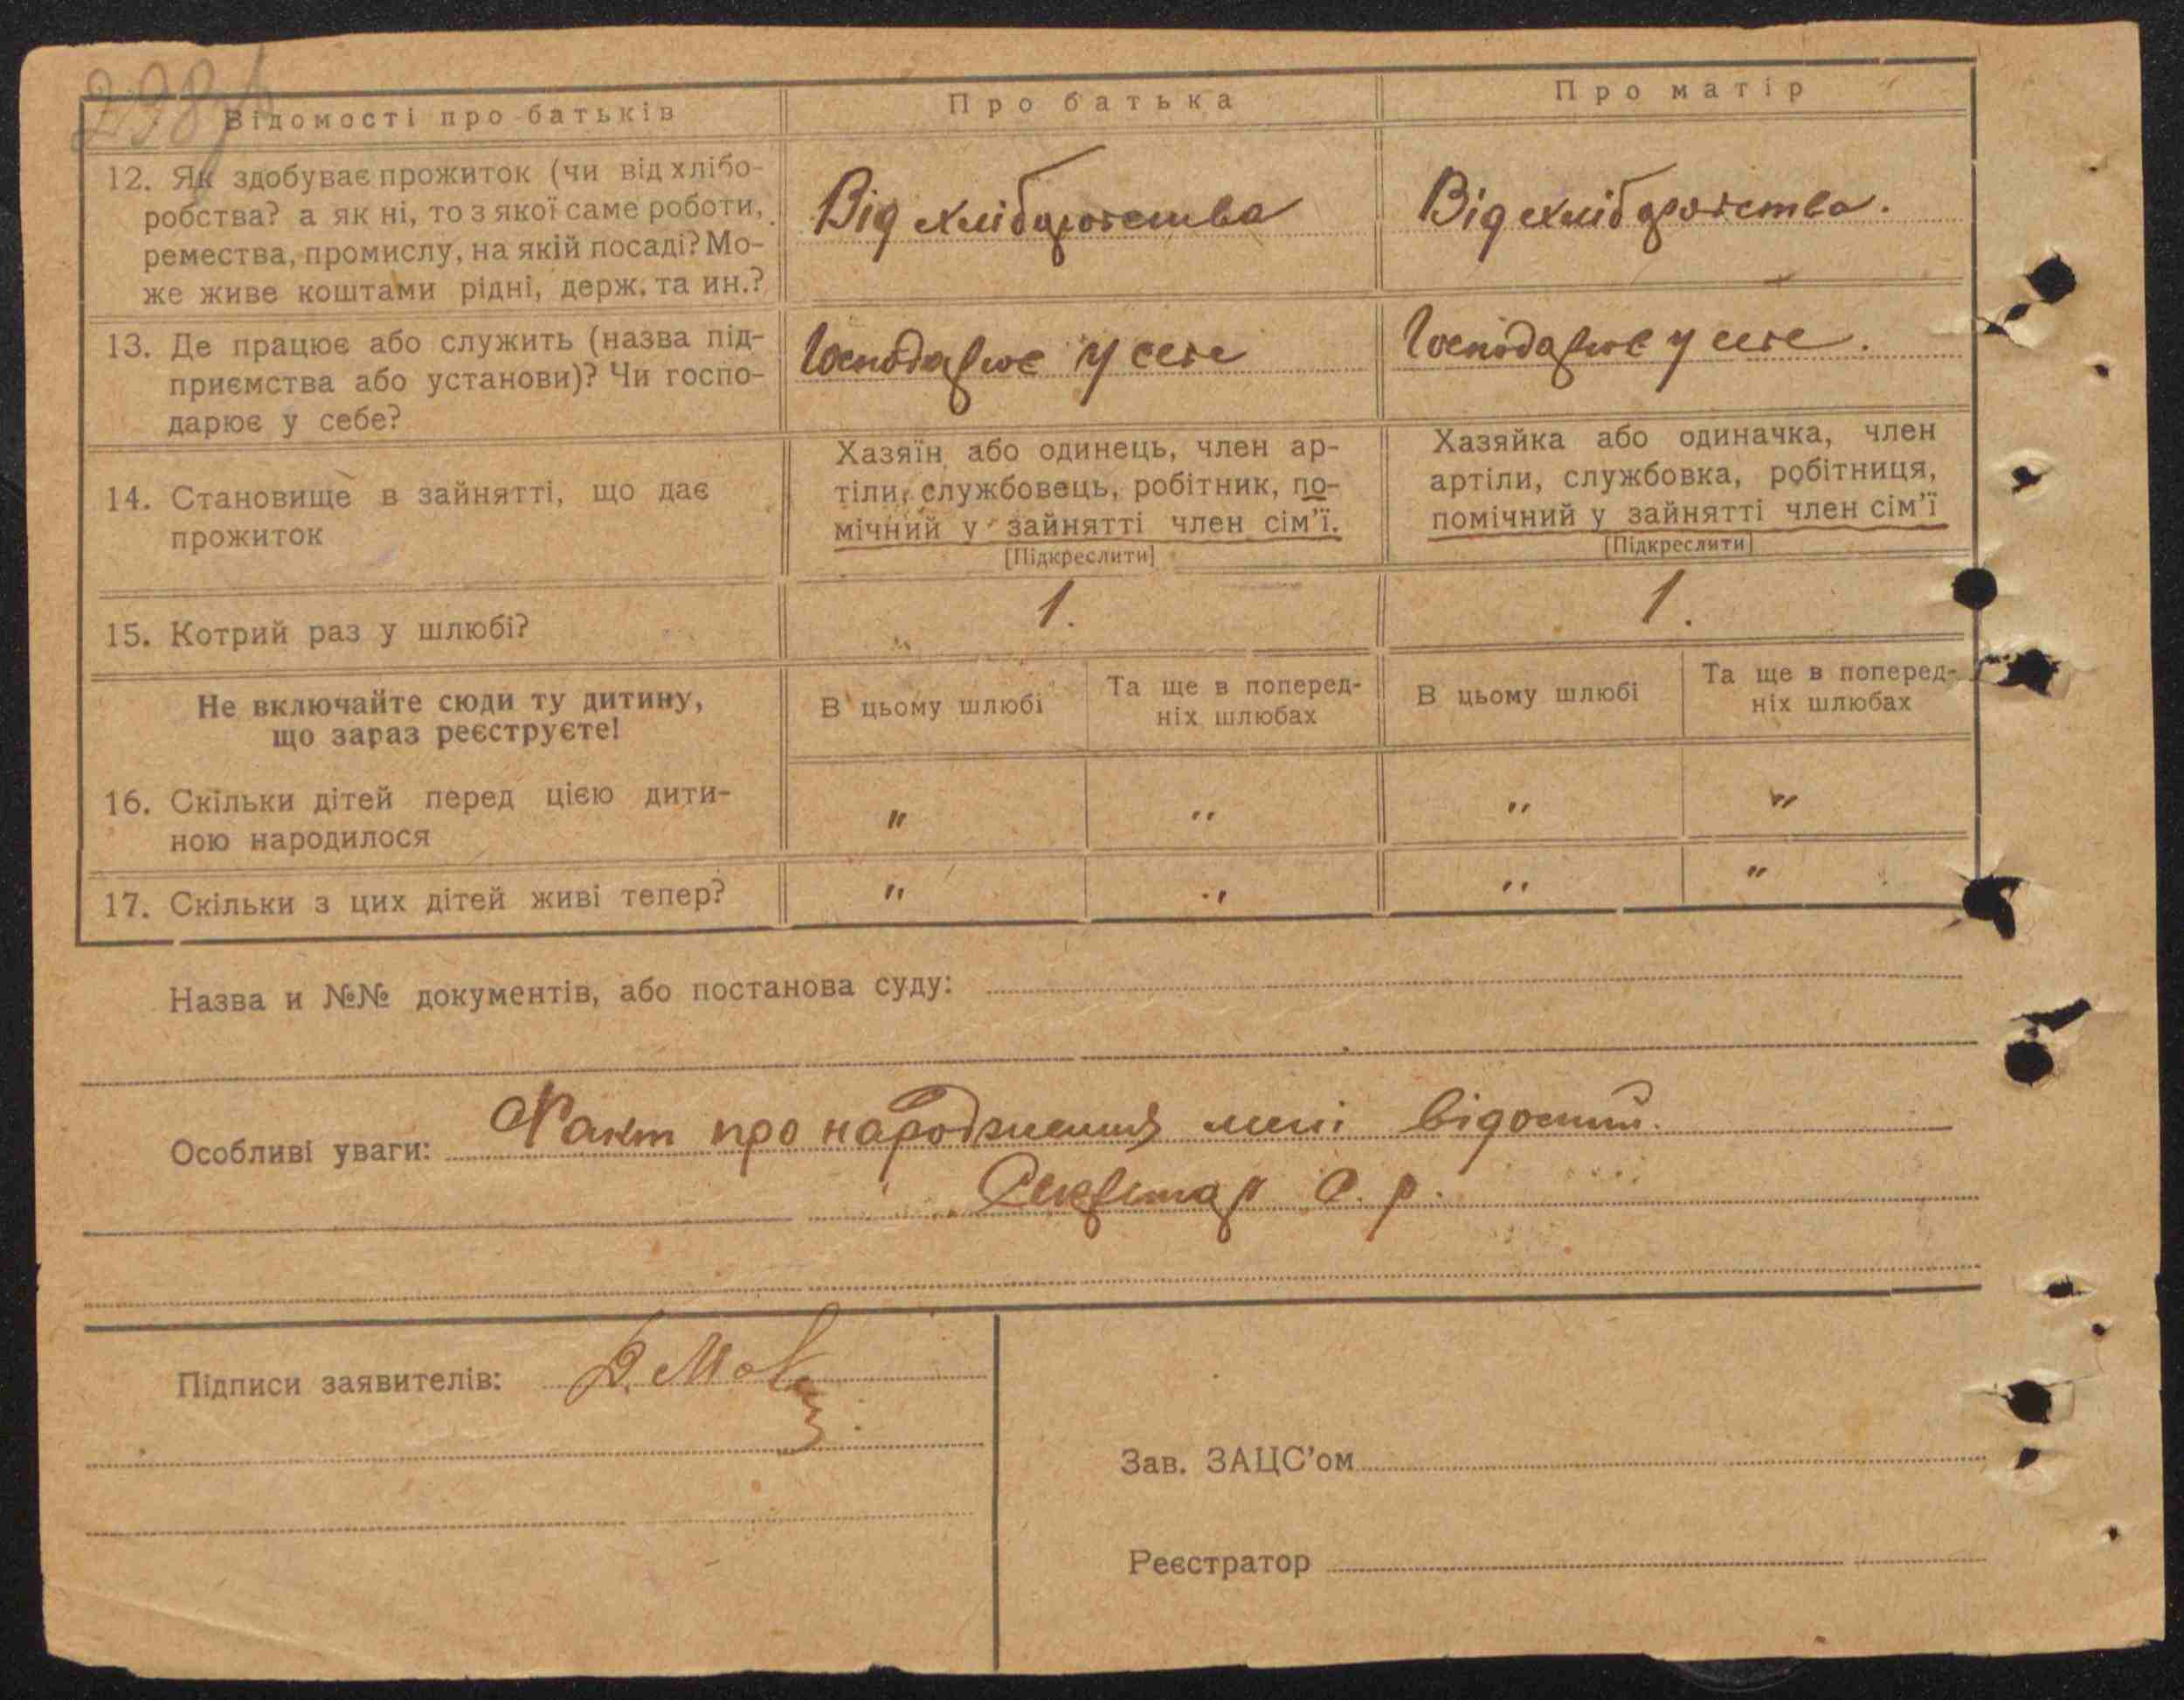 298
Відомості про батьків
Про батька
Про матір
12. Як здобуває прожиток (чи від хлібо-
робства? а як ні, то з якої саме роботи,
ремества, промислу, на якій посаді? Мо-
же живе коштами рідні, держ. та ин.?
Від хліборобства
Від хліборобства.
13. Де працює або служить (назва під-
приємства або установи)? Чи госпо-
дарює у себе?
Господарює у селе
Господарює у селе.
14. Становище в зайнятті, що дає
прожиток
Хазяїн або одинець, член ар-
тіли, службовець, робітник, по-
мічний у зайнятті член сім'ї.
[Підкреслити]
Хазяйка або одиначка, член
артіли, службовка, робітниця,
помічний у зайнятті член сім'ї
[Підкреслити]
15. Котрий раз у шлюбі?
1.
1.
Не включайте сюди ту дитину,
що зараз реєструєте!
В цьому шлюбі
Та ще в поперед-
ніх шлюбах
В цьому шлюбі
Та ще в поперед-
ніх шлюбах
16. Скільки дітей перед цією дити-
ною народилося
" " " "
17. Скільки з цих дітей живі тепер?
" " " "
Назва и №№ документів, або постанова суду:
Особливі уваги: Факт про народження мені відомий.
Секретар С. р.
Підписи заявителів:
Зав. ЗАЦС'ом
Реєстратор